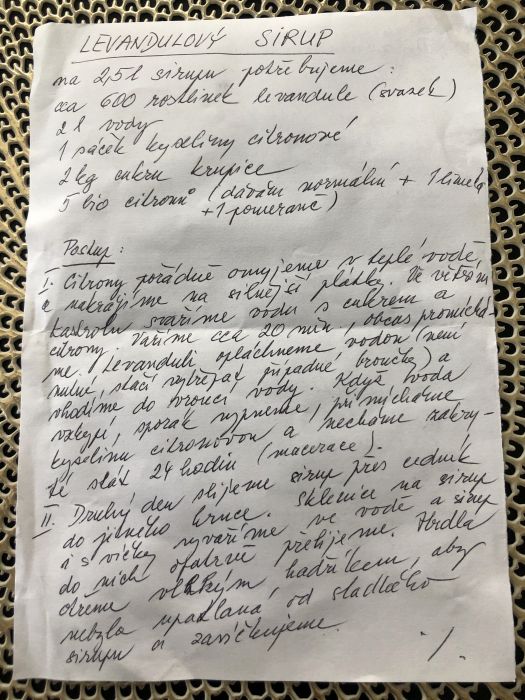 LEVANDULOVÝ SIRUP
na 2,5l sirupu potřebujeme:
cca 600 rostlinek levandule (svazek)
2 l vody
1 sáček kyseliny citronové
2 kg cukru krupice
5 bio citronů (dávám normální + 1 limeta
+ 1 pomeranč)
Postup:
I. Citrony pořádně omyjeme v teplé vodě,
a nakrájíme na silnější plátky. Ve větším
kastrolu svaříme vodu s cukrem a
citrony. Vaříme cca 20 min., občas promíchá-
me. Levanduli opláchneme vodou (není
nutné, stačí vytřepat případné broučky) a
vhodíme do vroucí vody. Když voda
vzkypí, sporák vypneme, přimícháme
kyselinu citronovou a necháme zakry-
té stát 24 hodin (macerace).
II. Druhý den slijeme sirup přes cedník
do jiného hrnce. Sklenice na sirup
a s víčky vyvaříme ve vodě a sirup
do nich opatrně přelijeme. Hrdla
otřeme vlhkým hadříkem, aby
nebyla upatlaná od sladkého
sirupu a zavíčkujeme.
./.